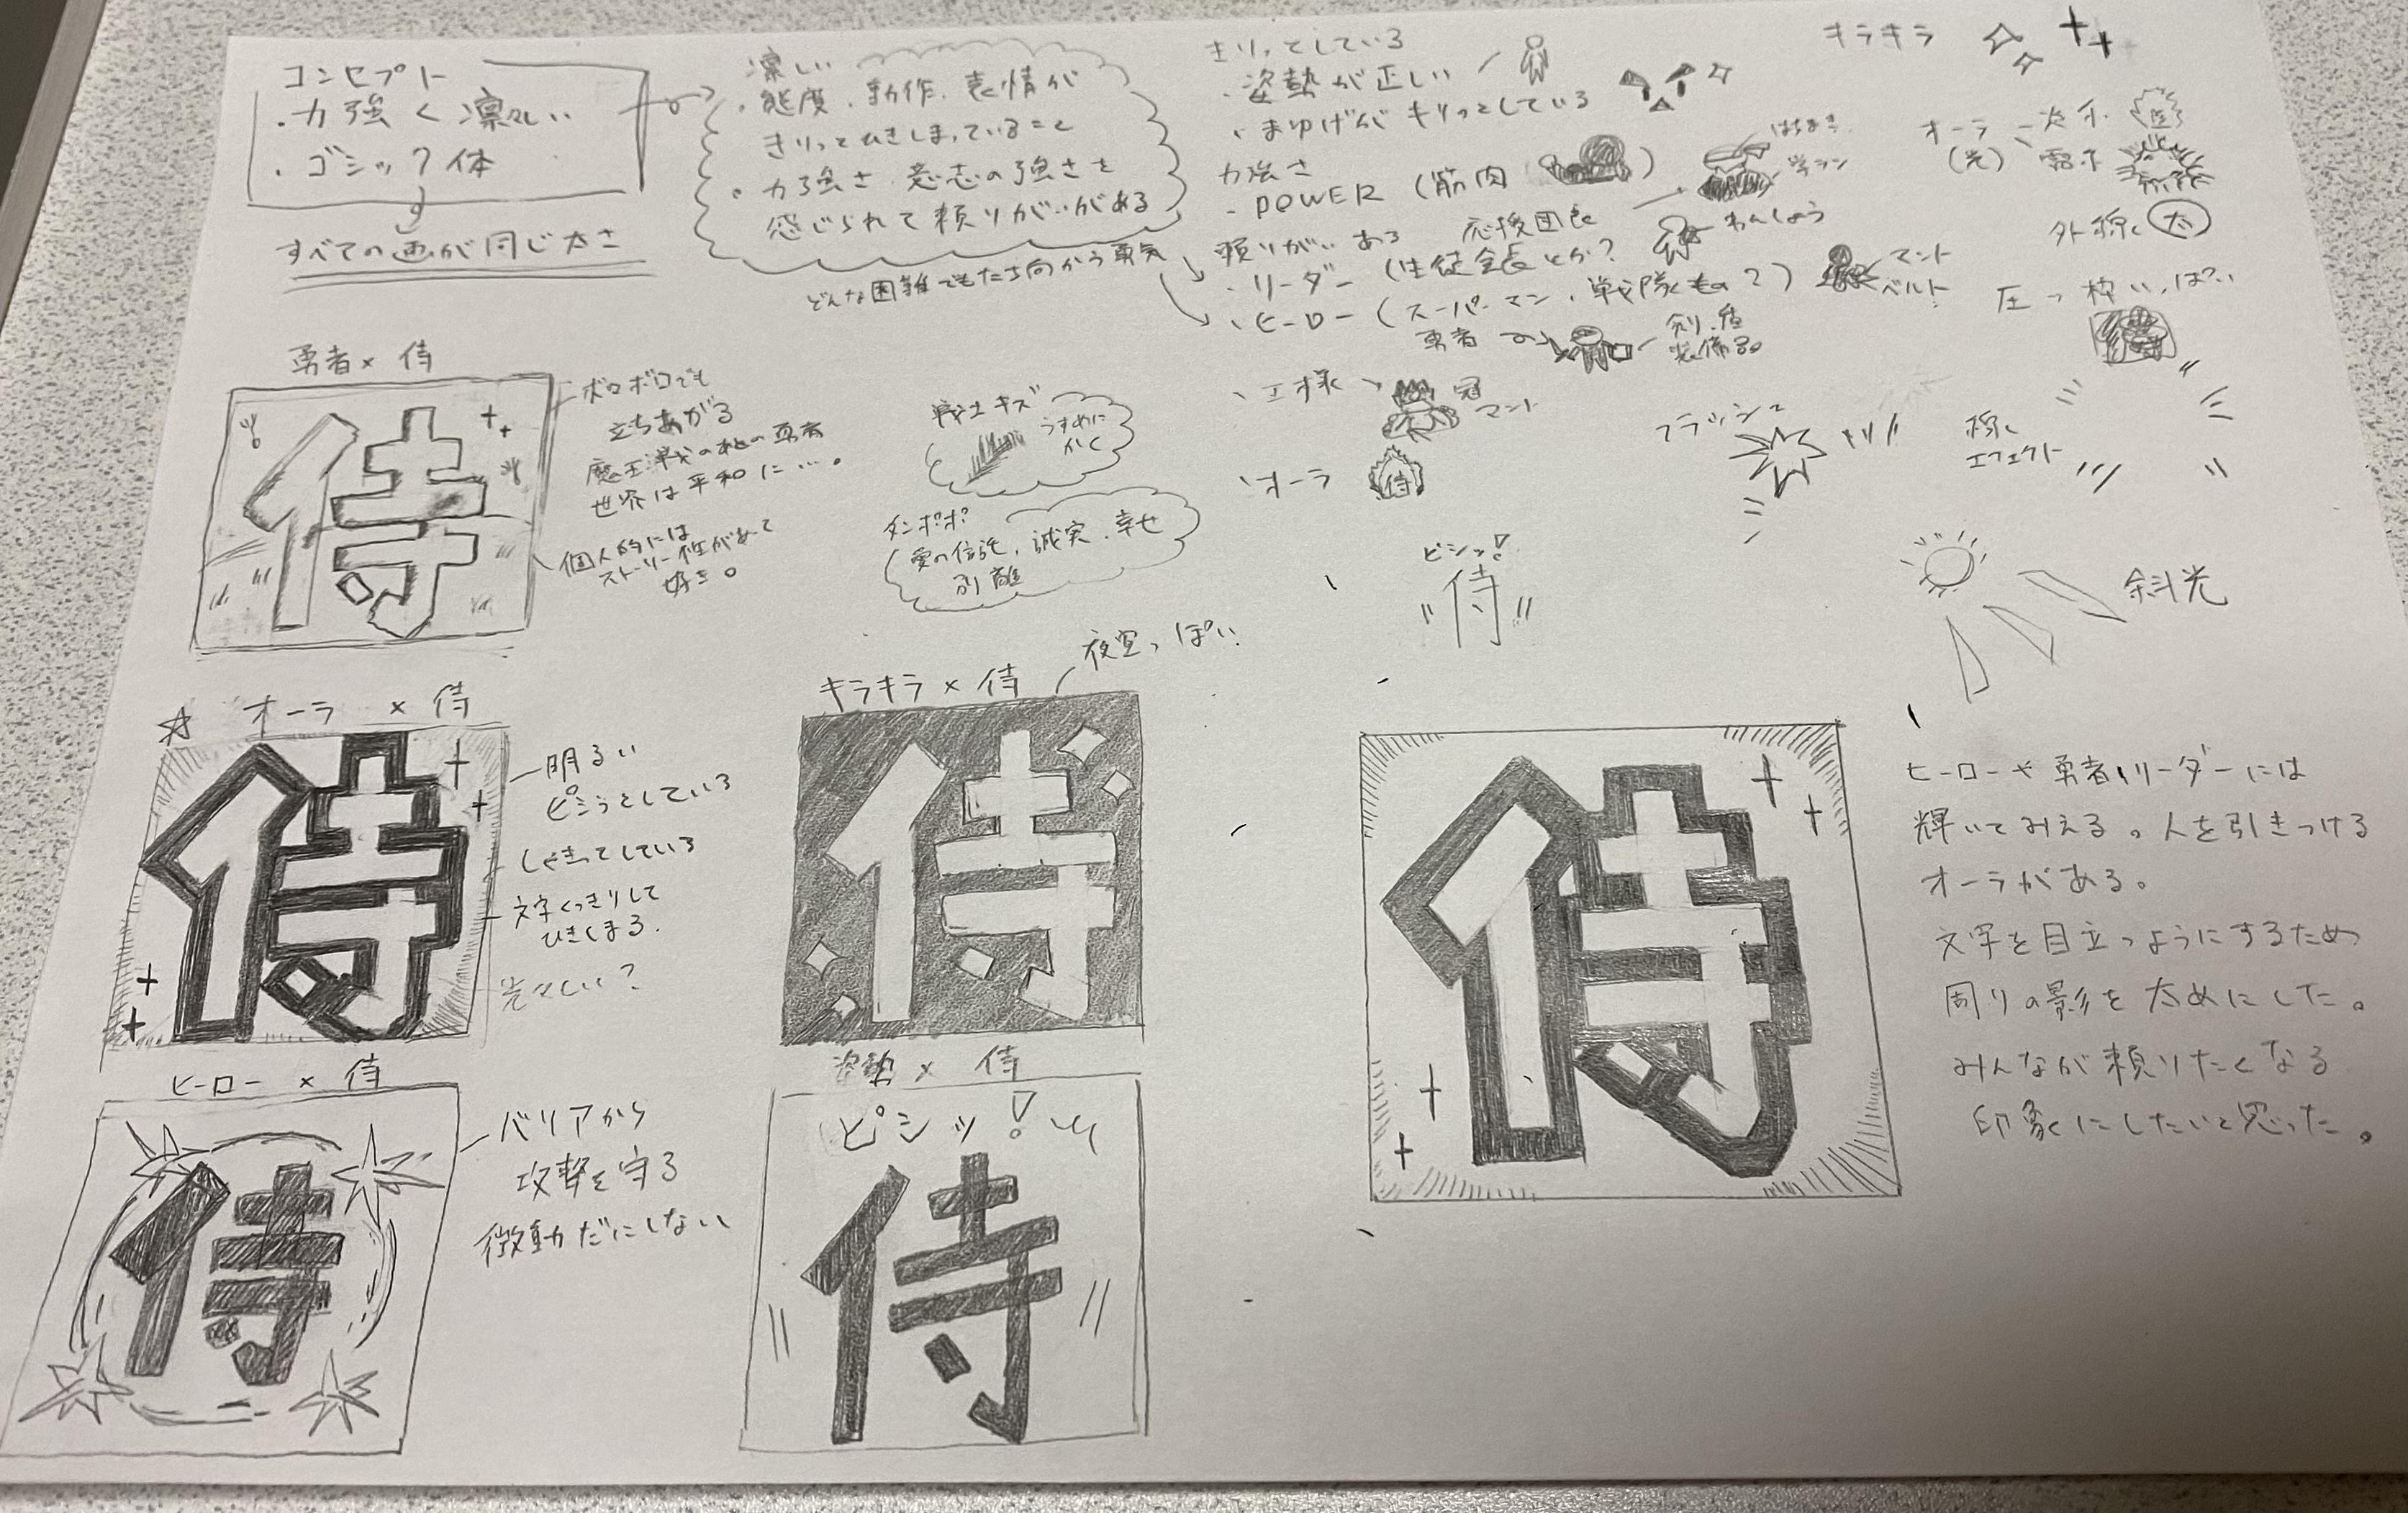 コンセプト
・力強く凛々しい
・ゴシック体
すべての画が同じ太さ
凛しい
・態度、動作、表情が
きりっとひきしまっていること
・力強さ、意志の強さを
感じられて頼りがいがある
どんな困難でもたち向かう勇気
きりっとしている
・姿勢が正しい
・まゆげがキリっとしている
力強さ
・POWER (筋肉 )
はちまき
学ラン
応援団長
頼りがいある
・リーダー (生徒会長とか?)
わんしょう
・ヒーロー (スーパーマン、戦隊もの?)
マント
ベルト
勇者
剣、盾
装備品
・王様
冠
マント
・オーラ
侍
キラキラ
オーラ
(光)
外線 太
圧っ 枠いっぱい
フラッシュ
キリ
線
エフェクト
ピシッ!
侍
斜光
勇者×侍
侍
ボロボロでも
立ちあがる
魔王戦のあとの勇者
世界は平和に…。
個人的には
ストーリー性があって
好き。
戦士キズ
うすめに
かく
タンポポ
愛の信託、誠実、幸せ
別離
☆ オーラ × 侍
侍
明るい
ピシっとしている
しゃきっとしている
文字くっきりして
ひきしまる。
光々しい?
キラキラ × 侍
夜空っぽい
侍
ヒーロー × 侍
侍
バリアから
攻撃を守る
微動だにしない
姿勢 × 侍
ピシッ!
侍
侍
ヒーローや勇者、リーダーには
輝いてみえる。人を引きつける
オーラがある。
文字を目立つようにするため
周りの影を太めにした。
みんなが頼りたくなる
印象にしたいと思った。